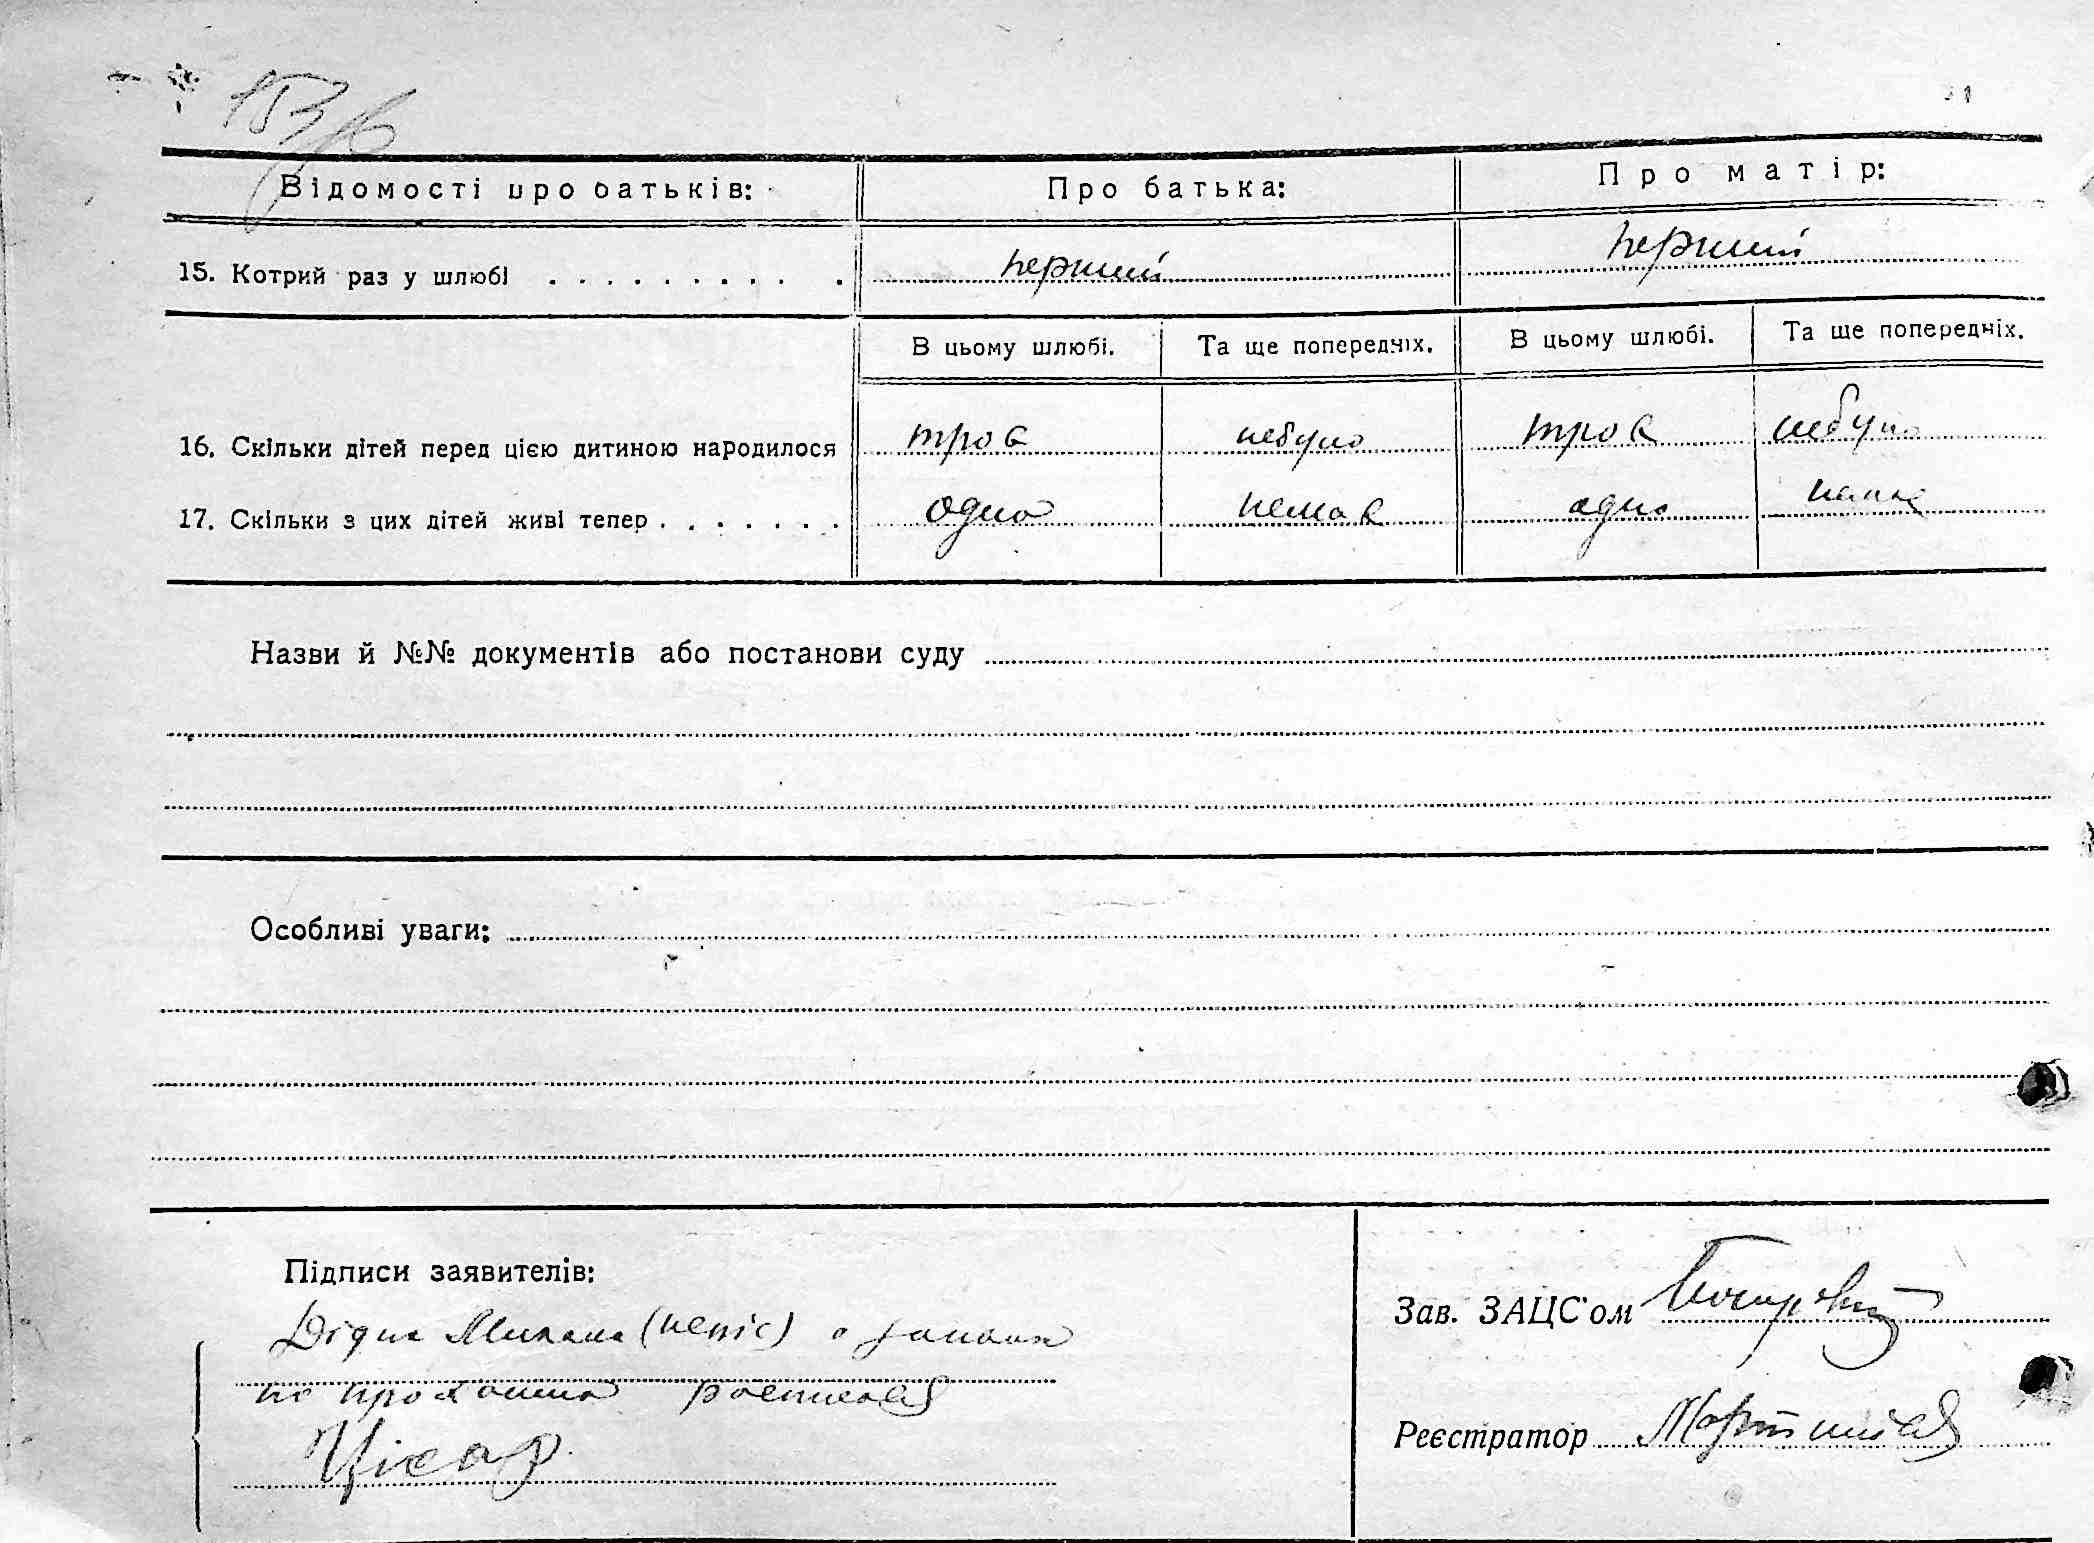 Відомості про батьків: Про батька: Про матір:
15. Котрий раз у шлюбі перший перший
В цьому шлюбі. Та ще попередніх. В цьому шлюбі. Та ще попередніх.
16. Скільки дітей перед цією дитиною народилося троє небуло троє небуло
17. Скільки з цих дітей живі тепер одно немає одно
Назви й №№ документів або постанови суду
Особливі уваги:
Підписи заявителів:
(непіс)
росписався
Зав. ЗАЦС'ом
Реєстратор